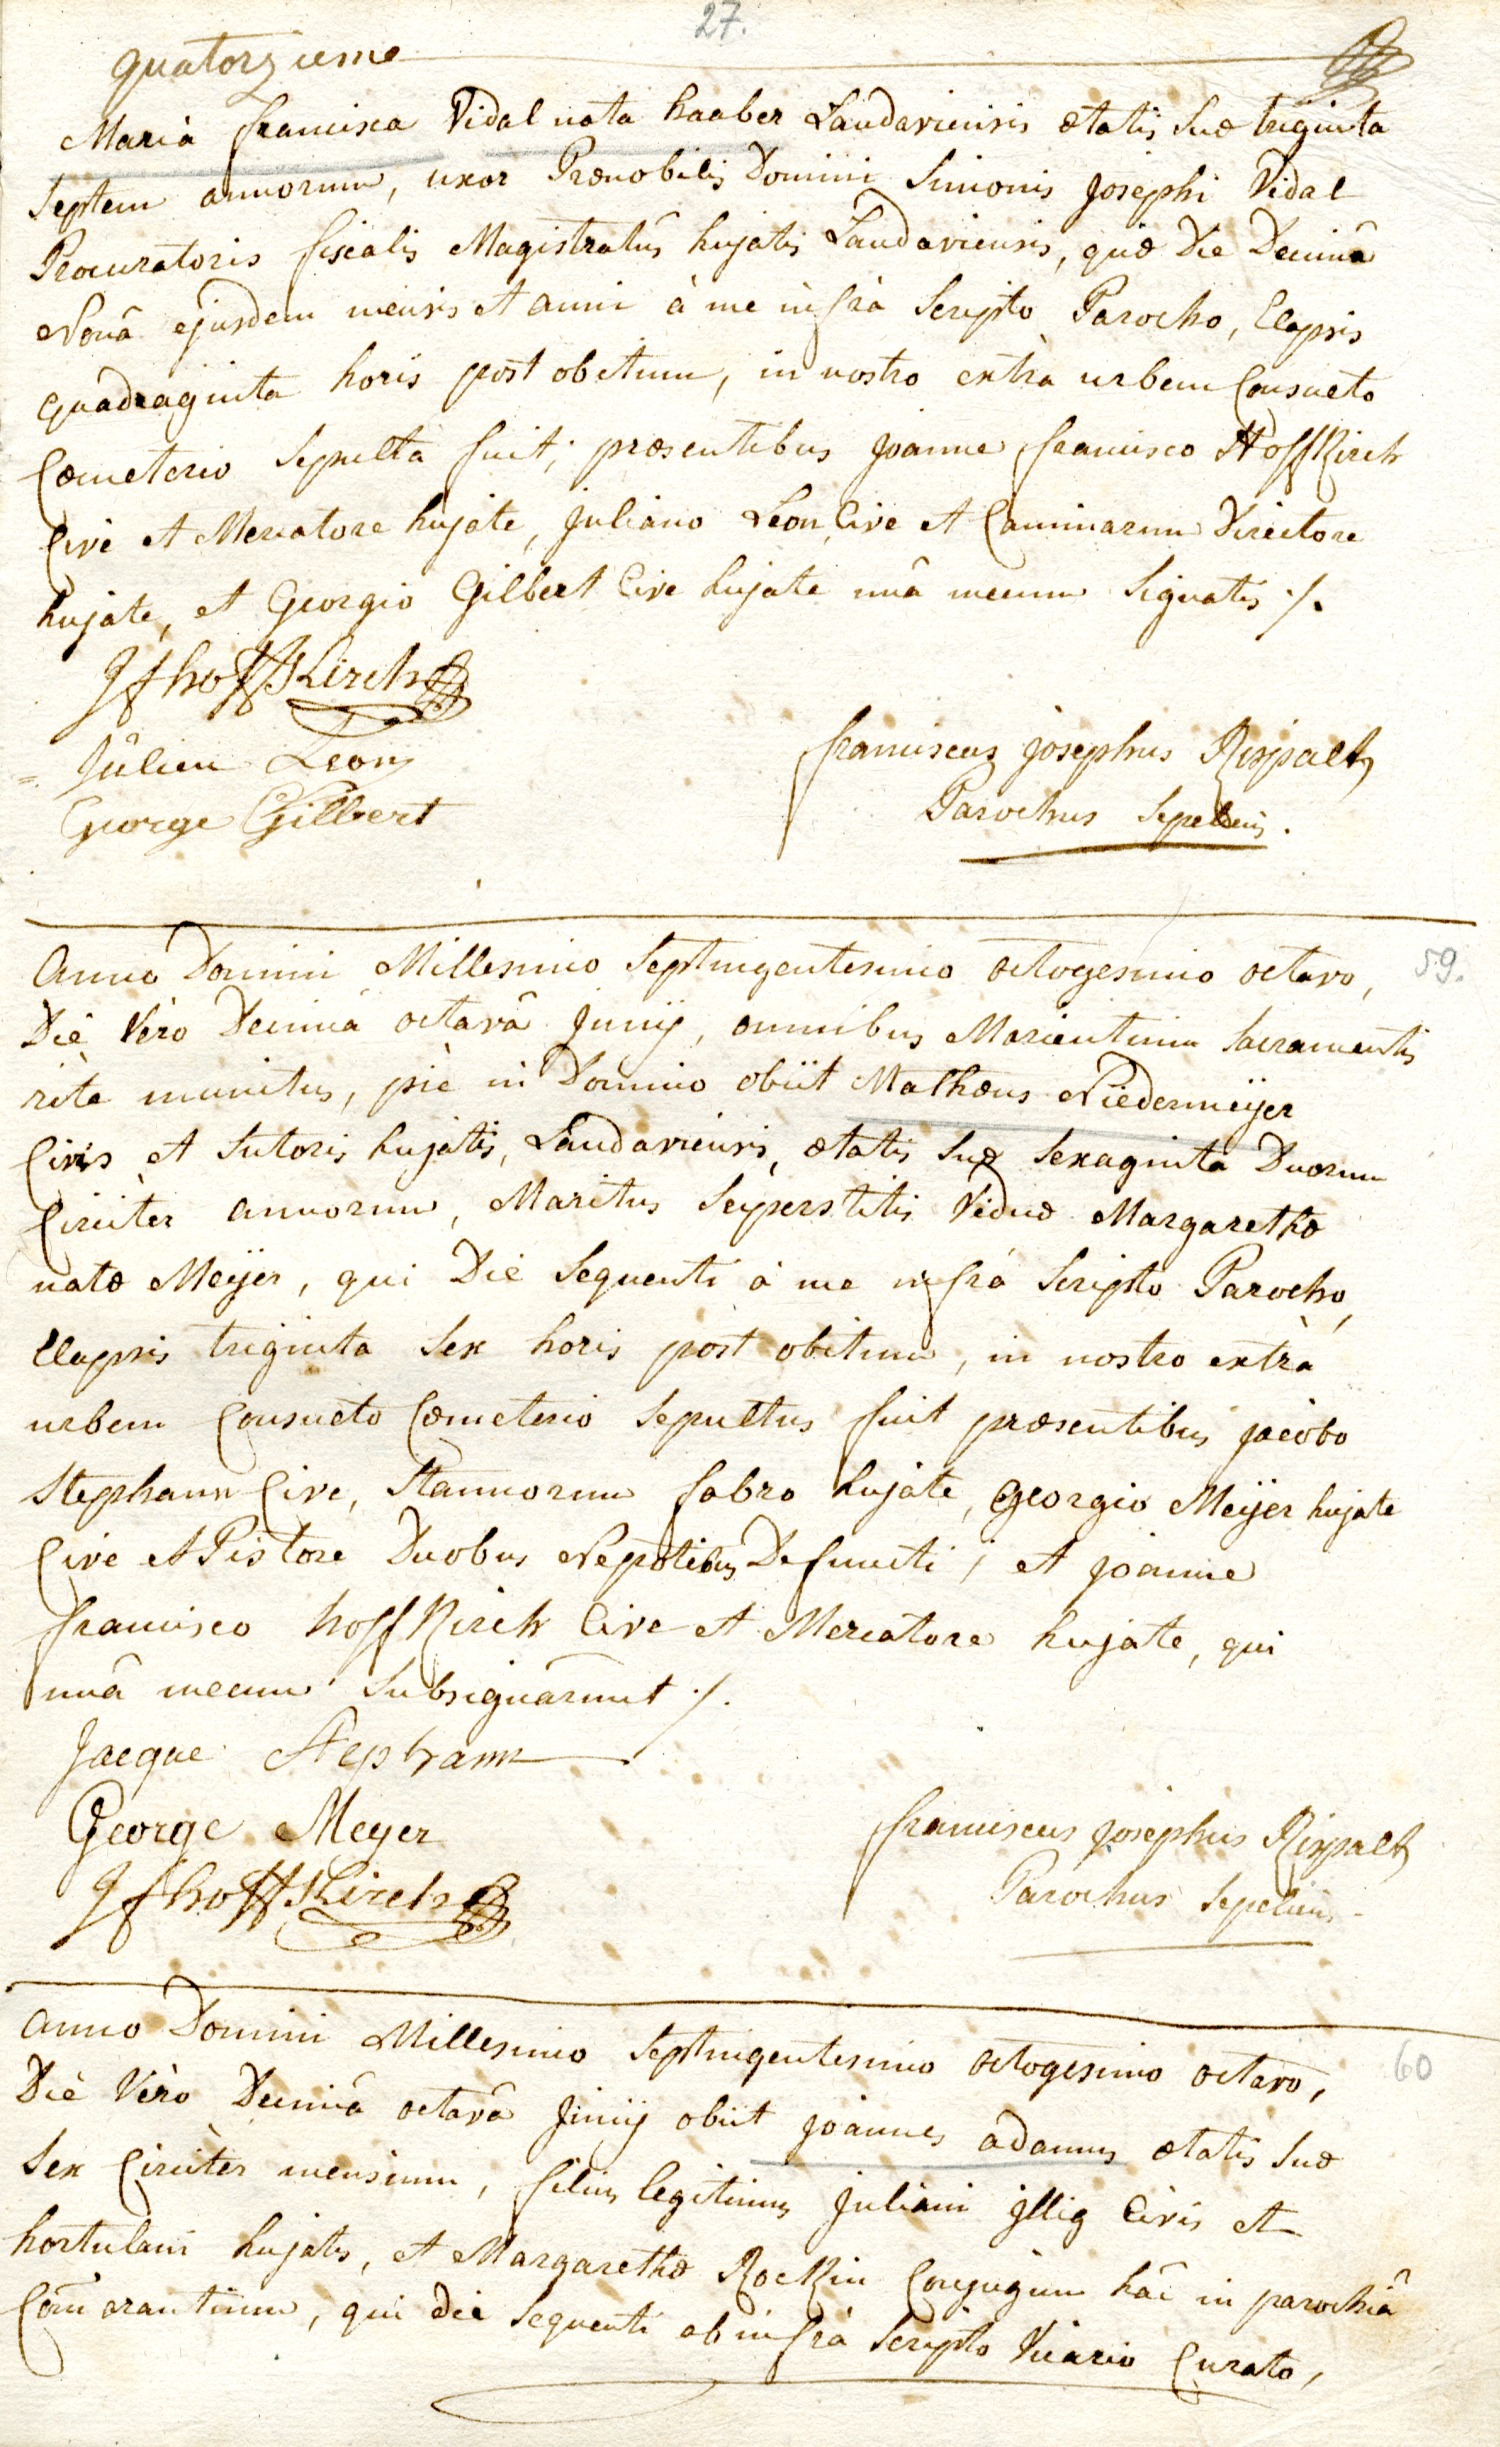 27.
quatorzieme
Maria francisca Vidal nata haaber Landaviensis ætatis Suæ triginta
Septem annorum, uxor Prænobilis Domini Simonis Josephi Vidal
Procuratoris fiscalis Magistratûs hujatis Landaviensis, quæ Die Decimâ
Nonâ ejusdem mensis et anni à me infrà Scripto Parocho, Elapsis
quadraginta horis post obitum, in nostro extrà urbem Consueto
Cœmeterio Sepulta fuit; præsentibus Joanne francisco Hoffkirch
Cive et Mercatore hujate, Juliano Leon Cive et Caminarum Directore
hujate, et Georgio Gilbert Cive hujate unâ mecum Signatis ./.
Jfhoffkirch
Julien Leon
George Gilbert
franciscus Josephus Rispalt
Parochus Sepeliens.
59.
Anno Domini Millesimo Septingentesimo octogesimo octavo,
Diê Vèro Decimâ octavâ Junij, omnibus Morientium Sacramentis
ritè munitus, piè in Domino obiit Mathæus Niedermeijer
Civis et Sutoris hujatis, Landaviensis, ætatis Suæ Sexaginta Duorum
Circitèr annorum, Maritus Superstitis Viduæ Margarethæ
natæ Meijer, qui Diê Sequenti à me infrà Scripto Parocho,
Elapsis triginta Sex horis post obitum, in nostro extrà
urbem Consueto Cœmeterio Sepultus fuit præsentibus Jacobo
Stephann Cive, Stannorum fabro hujate, Georgio Meijer hujate
Cive et Pistore Duobus Nepotibus Defuncti; et Joanne
francisco hoffkirch Cive et Mercatore hujate, qui
unâ mecum Subsignârunt ./.
Jacque Stephann
George Meyer
Jfhoffkirch
franciscus Josephus Rispalt
Parochus Sepeliens
60
Anno Domini Millesimo Septingentesimo octogesimo octavo,
Diê Vèro Decimâ octavâ Junij obiit Joannes adamus ætatis Suæ
Sex Circitèr mensium, filius legitimus Juliani Jllig Civis et
hortulani hujatis, et Margarethæ Rockin Conjugum hâc in parochiâ
Com̃orantium, qui die Sequenti ab infrà Scripto Vicario Curato,